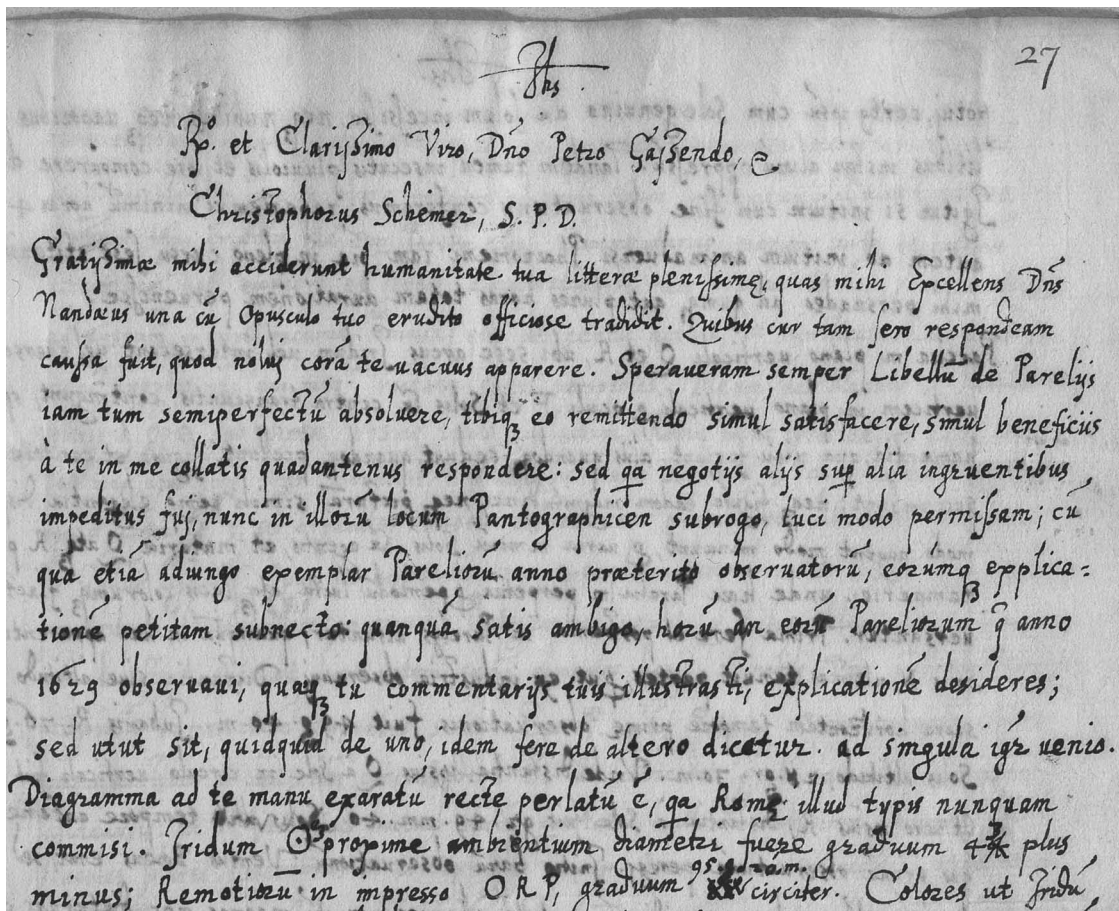 27
Jhs
Rdo. et Clarissimo Viro, Dno Petro Gassendo,
Christophorus Scheiner, S. P. D.
Gratissimæ mihi acciderunt humanitate tua litteræ plenissimę, quas mihi Excellens Dns
Naudæus una cū Opusculo tuo erudito officiose tradidit. Quibus cur tam sero respondeam
caussa fuit, quod nolui corā te vacuus apparere. Speraveram semper Libellū de Parelijs
iam tum semiperfectū absoluere, tibiq eo remittendo simul satisfacere, simul beneficiis
à te in me collatis quadantenus respondere: sed qa negotijs alijs sup alia ingruentibus
impeditus fui, nunc in illorū locum Pantographicen subrogo, luci modo permissam; cū
qua etiā adiungo exemplar Pareliorū anno præterito observatorū, eorumq explica=
tionē petitam subnecto: quanquā satis ambigo, horū an eorū Pareliorum q anno
1629 observavi, quaq tu commentarijs tuis illustrasti, explicationē desideres;
sed utut sit, quidquid de uno, idem fere de altero dicatur. ad singula igr venio.
Diagramma ad te manu exaratū recte perlatū ē, qa Romę illud typis nunquam
commisi. Iridum proxime ambientium diametri fuere graduum plus
minus; Remotiorū in impresso O R P, graduum 95. circiter. Colores ut Iridū,